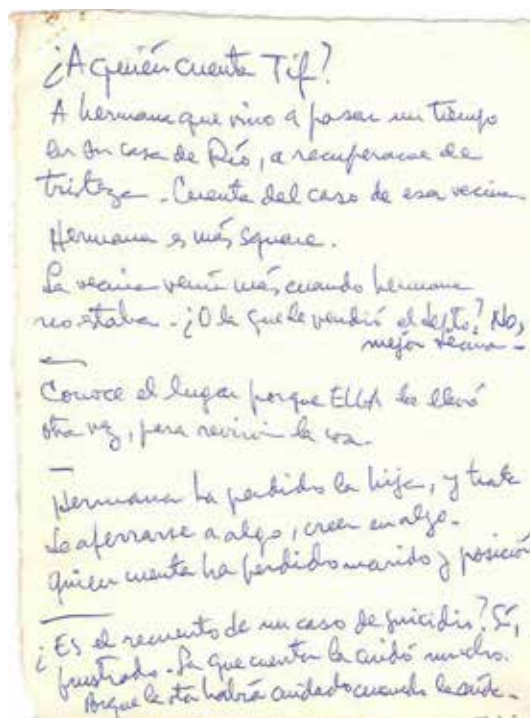 ¿A quién cuenta Tif?
A hermana que vino a pasar un tiempo
en su casa de Río, a recuperarse de
tristeza - Cuenta del caso de esa vecina
Hermana es más square.
La vecina venía más cuando hermana
no estaba - ¿O la que le vendió el depto? No,
mejor vecina -
Conoce el lugar porque ELLA la llevó
otra vez, para revivir la cosa.
Hermana ha perdido la hija, y trata
de aferrarse a algo, creer en algo -
Quien cuenta ha perdido marido y posición
¿Es el recuento de un caso de suicidio? Sí,
frustrado - La que cuenta la cuidó mucho.
Porque la otra habrá cuidado cuando